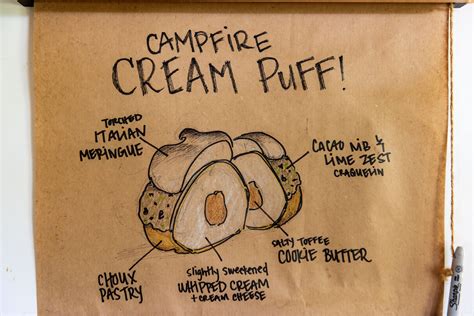 CAMPFIRE
CREAM PUFF!
TORCHED
ITALIAN
MERINGUE
CACAO NIB &
LIME ZEST
CRAQUELIN
SALTY TOFFEE
COOKIE BUTTER
slightly sweetened
WHIPPED CREAM
+ CREAM CHEESE
CHOUX
PASTRY
Sharpie